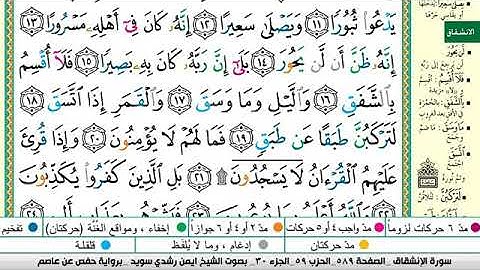 يَدْعُوا۟ ثُبُورًا ١١ وَيَصْلَىٰ سَعِيرًا ١٢ إِنَّهُۥ كَانَ فِىٓ أَهْلِهِۦ مَسْرُورًا ١٣
إِنَّهُۥ ظَنَّ أَن لَّن يَحُورَ ١٤ بَلَىٰٓ إِنَّ رَبَّهُۥ كَانَ بِهِۦ بَصِيرًا ١٥ فَلَآ أُقْسِمُ
بِٱلشَّفَقِ ١٦ وَٱلَّيْلِ وَمَا وَسَقَ ١٧ وَٱلْقَمَرِ إِذَا ٱتَّسَقَ ١٨
لَتَرْكَبُنَّ طَبَقًا عَن طَبَقٍ ١٩ فَمَا لَهُمْ لَا يُؤْمِنُونَ ٢٠ وَإِذَا قُرِئَ
عَلَيْهِمُ ٱلْقُرْءَانُ لَا يَسْجُدُونَ ۩ ٢١ بَلِ ٱلَّذِينَ كَفَرُوا۟ يُكَذِّبُونَ
الانشقاق
لَن يَحُورَ
فَلَا أُقْسِمُ
بِالشَّفَقِ
مَا وَسَقَ
اتَّسَقَ
لَتَرْكَبُنَّ
مدّ ٦ حركات لزوماً
مدّ واجب ٤ أو ٥ حركات
مدّ ٢ أو ٤ أو ٦ جوازاً
إخفاء، ومواقع الغُنَّة (حركتان)
تفخيم
مدّ حركتان
إدغام، وما لا يُلفَظ
قلقلة
سورة الإنشقاق . الصفحة ٥٨٩ . الحزب ٥٩ . الجزء ٣٠ . بصوت الشيخ ايمن رشدي سويد . برواية حفص عن عاصم